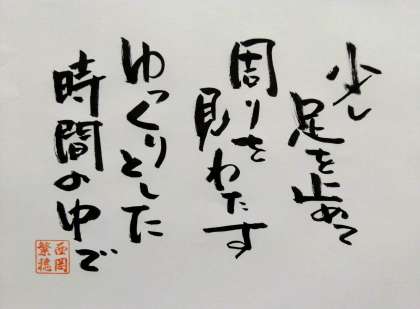 少し
足を止めて
周りを
見わたす
ゆっくりとした
時間の中で
西岡
繁穂